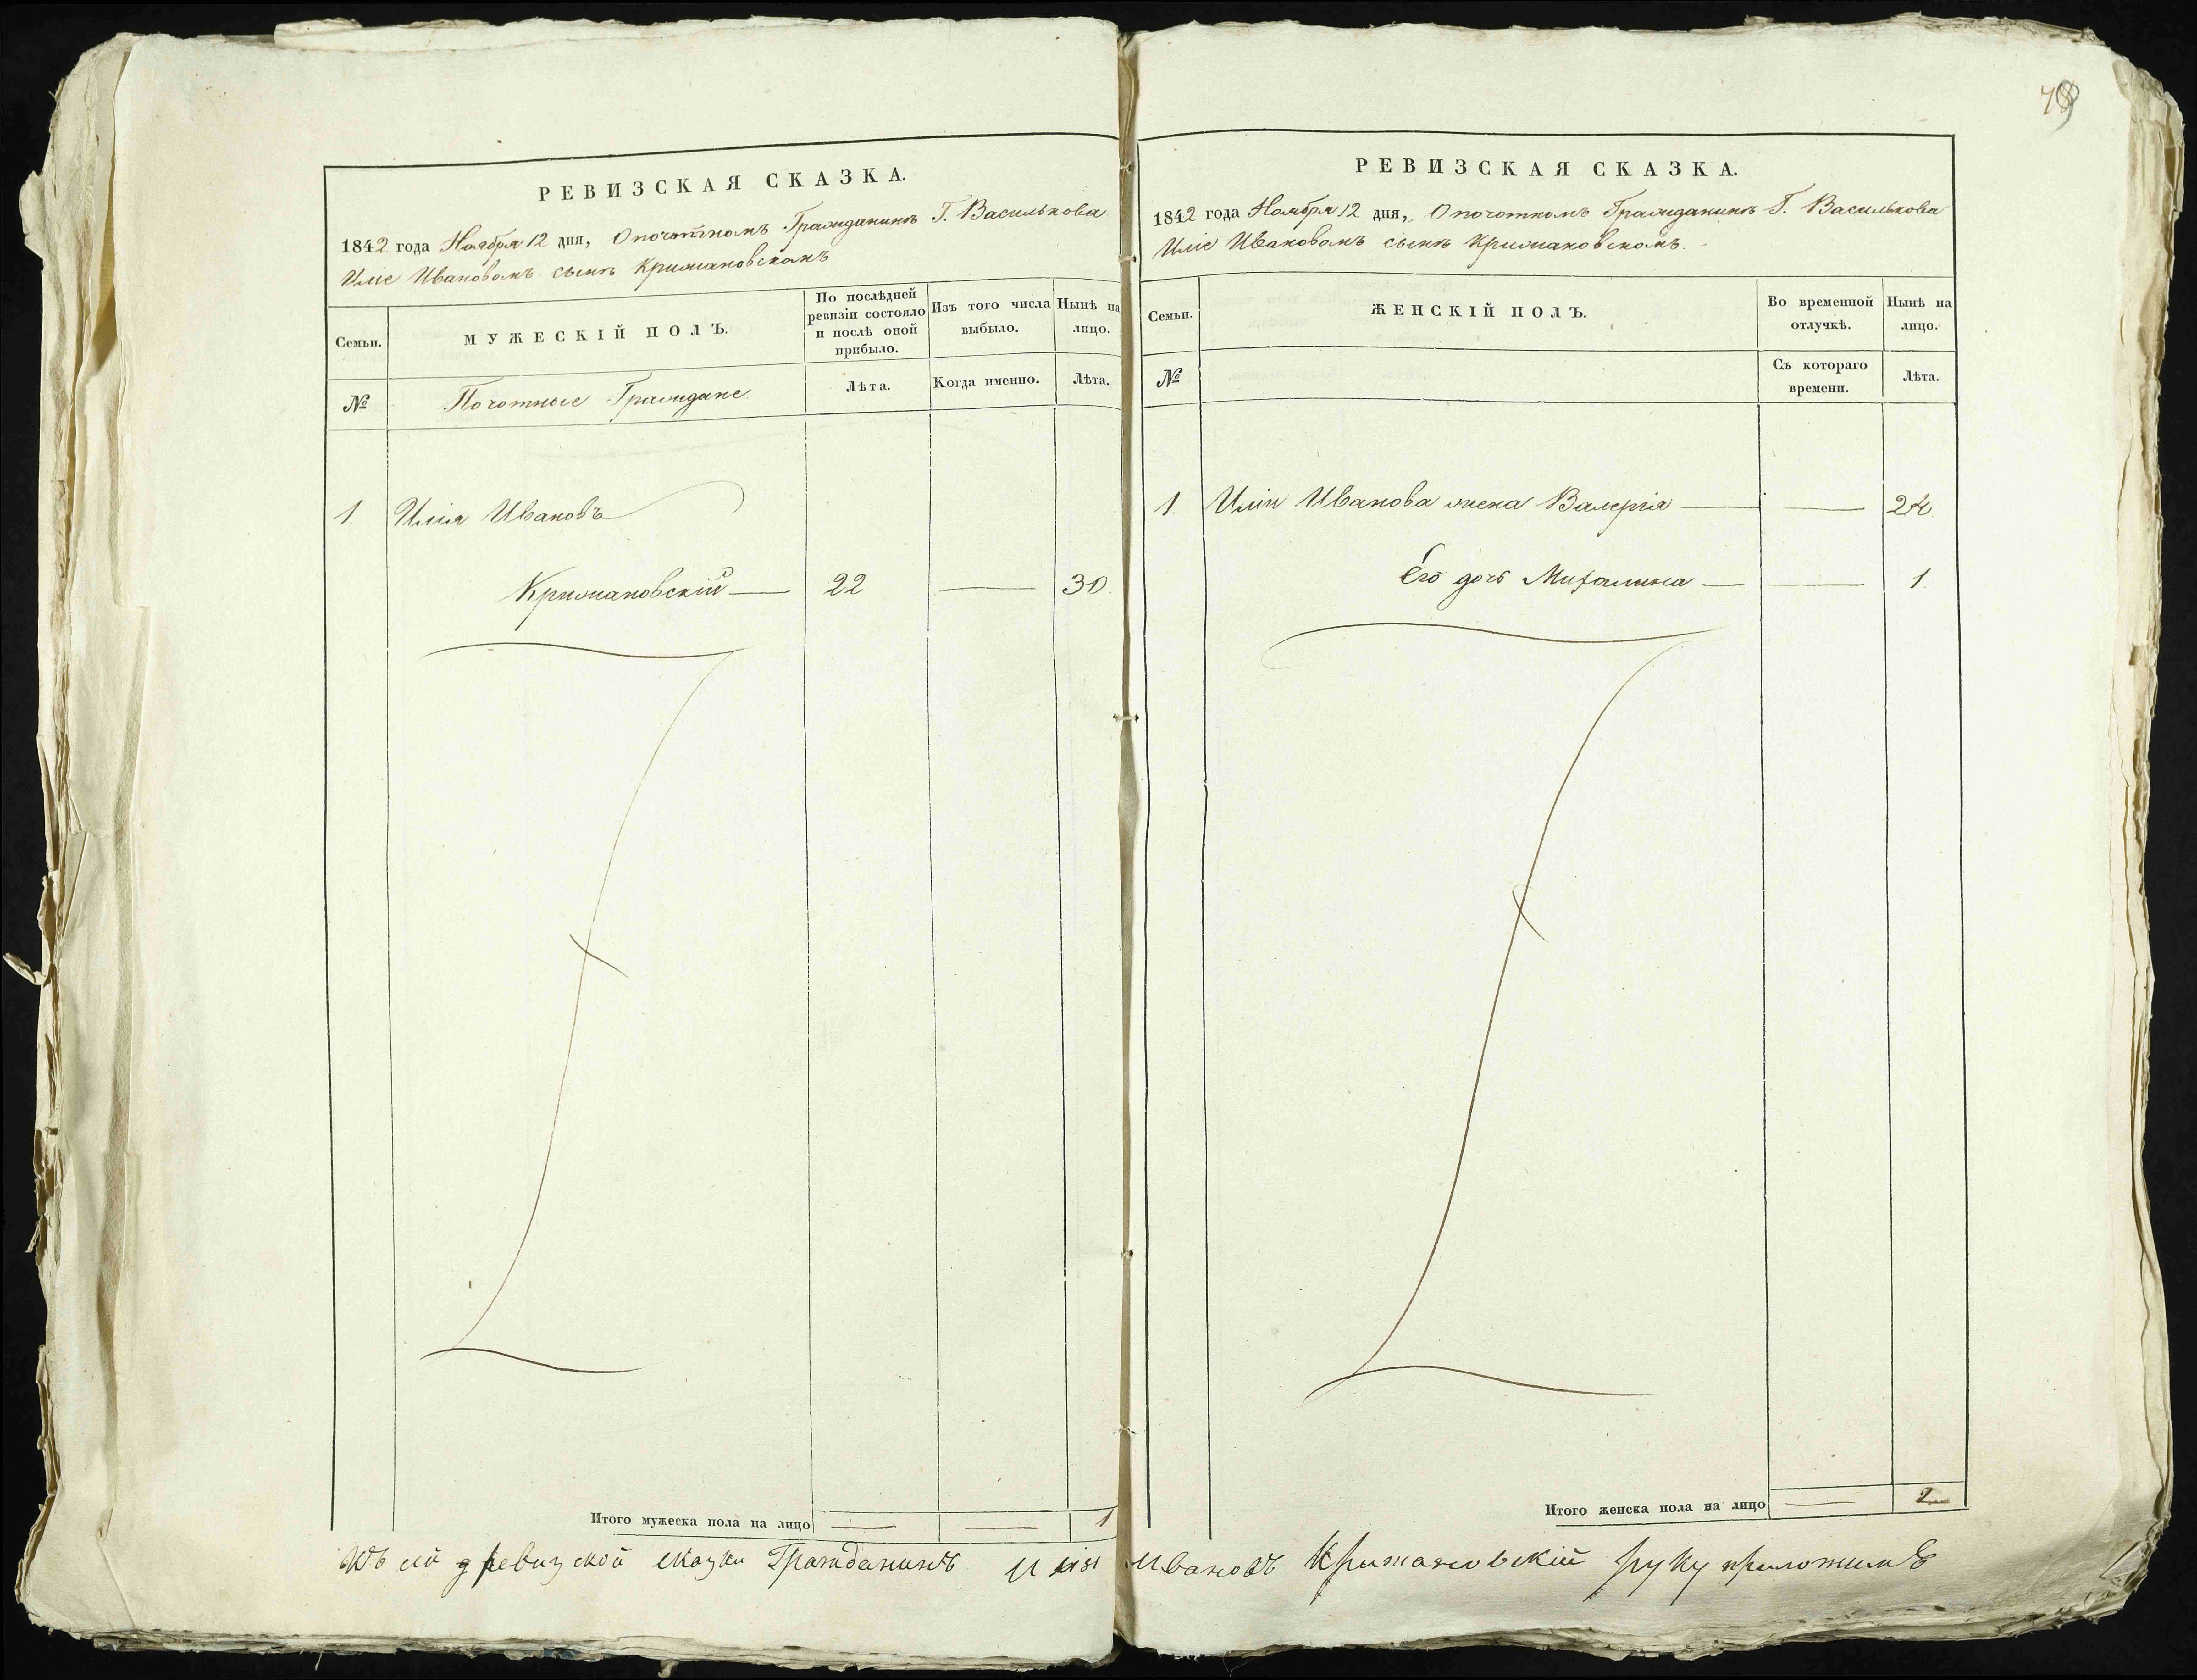 РЕВИЗСКАЯ СКАЗКА.
1842 года Ноября 12 дня, О почотномъ Гражданинѣ Г. Василькова
Иліе Ивановомъ сынѣ Крижановскомъ
Семьи.
МУЖЕСКІЙ ПОЛЪ.
По послѣдней ревизіи состояло и послѣ оной прибыло.
Изъ того числа выбыло.
Нынѣ на лицо.
№
Почотные Граждане.
Лѣта.
Когда именно.
Лѣта.
1. Илія Ивановъ
Крижановскій — 22 — 30.
Итого мужеска пола на лицо — — 1
РЕВИЗСКАЯ СКАЗКА.
1842 года Ноября 12 дня, О почотномъ Гражданинѣ Г. Василькова
Иліе Ивановомъ сынѣ Крижановскомъ.
Семьи.
ЖЕНСКІЙ ПОЛЪ.
Во временной отлучкѣ.
Нынѣ на лицо.
№
Съ котораго времени.
Лѣта.
1. Иліи Иванова жена Валерія — — 24
Его дочь Михалина — — 1.
Итого женска пола на лицо — 2
Къ сей ревизской сказки Гражданинъ Илія Ивановъ Крижановскій руку приложилъ